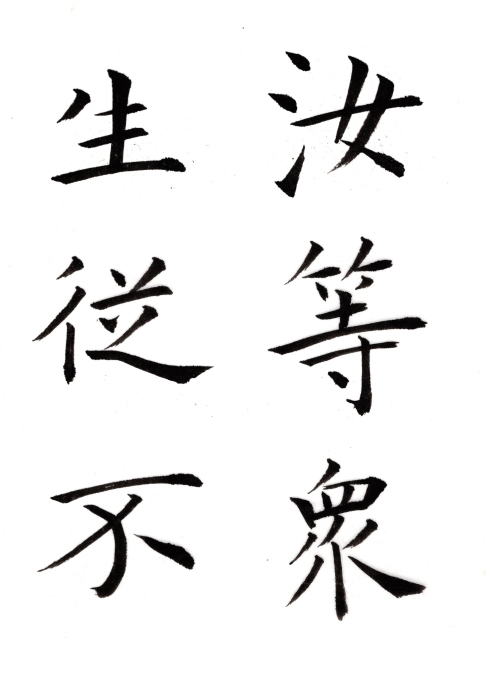 汝等衆
生従不